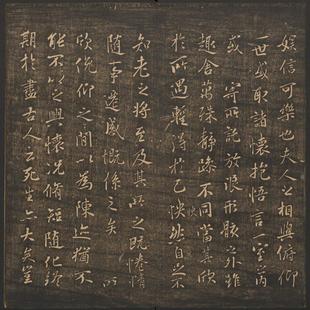 娛信可樂也夫人之相與俯仰
一世或取諸懷抱悟言一室之內
或寄所託放浪形骸之外雖
趣舍萬殊靜躁不同當其欣
於所遇蹔得於己怏然自足不
知老之將至及其所之既惓情
隨事遷感慨係之矣所
欣俛仰之間以為陳迹猶不
能不以之興懷況脩短隨化終
期於盡古人云死生亦大矣豈